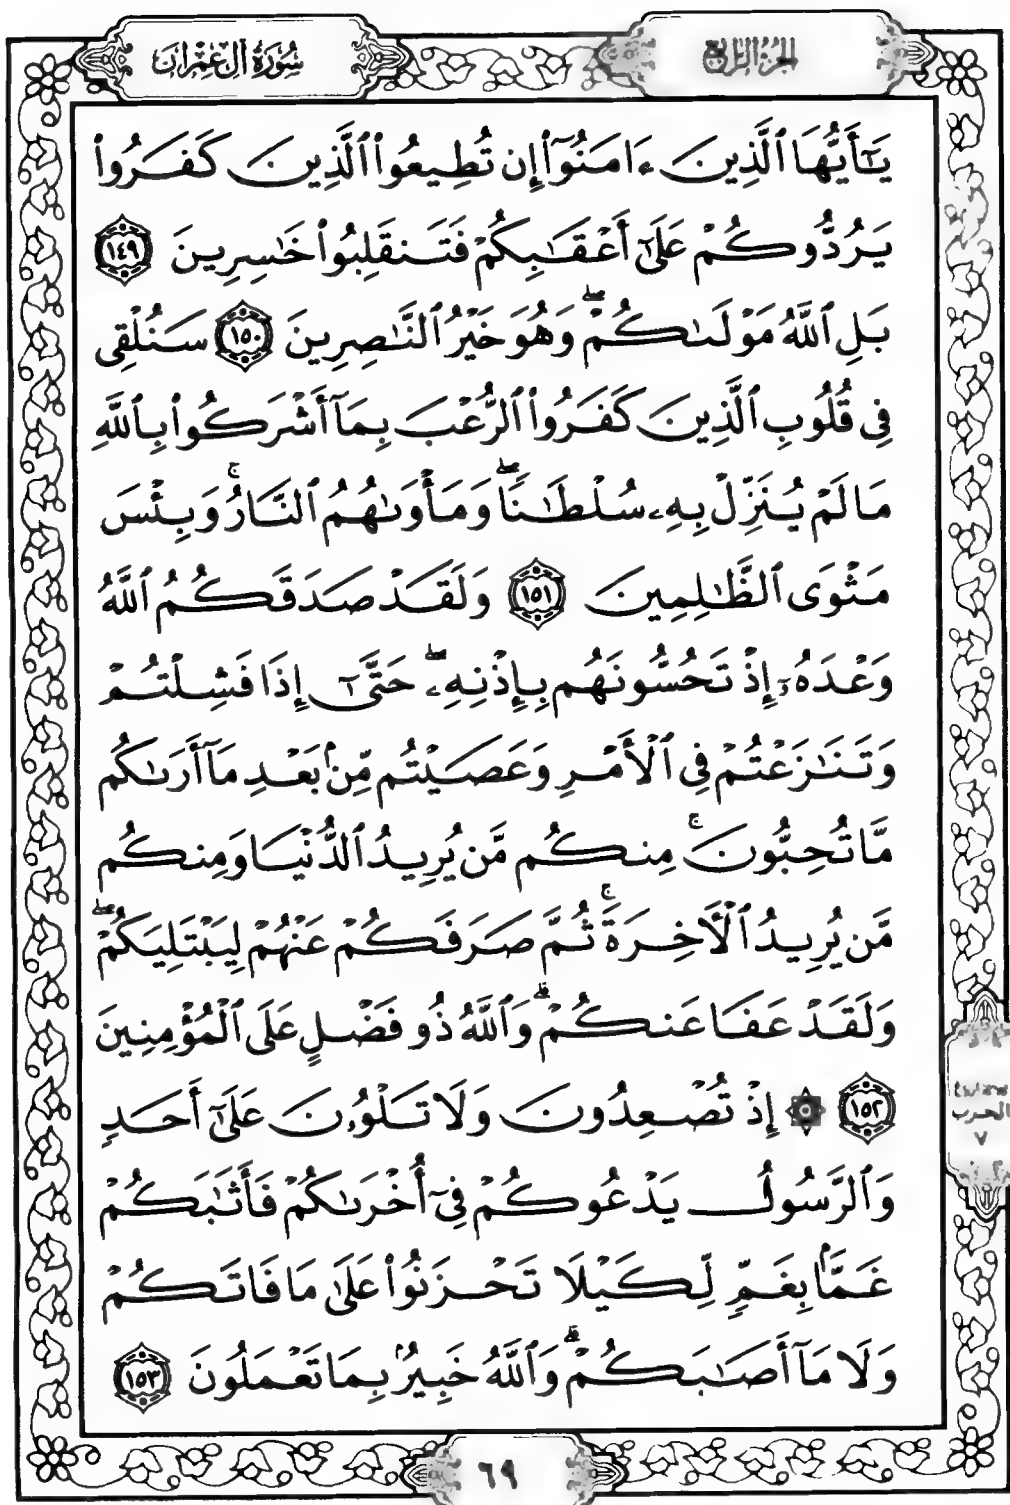 الجزء الرابع
سُورَةُ آلِ عِمْرَانَ
يَـٰٓأَيُّهَا ٱلَّذِينَ ءَامَنُوٓا۟ إِن تُطِيعُوا۟ ٱلَّذِينَ كَفَرُوا۟
يَرُدُّوكُمْ عَلَىٰٓ أَعْقَـٰبِكُمْ فَتَنقَلِبُوا۟ خَـٰسِرِينَ ١٤٩
بَلِ ٱللَّهُ مَوْلَىٰكُمْ ۖ وَهُوَ خَيْرُ ٱلنَّـٰصِرِينَ ١٥٠ سَنُلْقِى
فِى قُلُوبِ ٱلَّذِينَ كَفَرُوا۟ ٱلرُّعْبَ بِمَآ أَشْرَكُوا۟ بِٱللَّهِ
مَا لَمْ يُنَزِّلْ بِهِۦ سُلْطَـٰنًا ۖ وَمَأْوَىٰهُمُ ٱلنَّارُ ۚ وَبِئْسَ
مَثْوَى ٱلظَّـٰلِمِينَ ١٥١ وَلَقَدْ صَدَقَكُمُ ٱللَّهُ
وَعْدَهُۥٓ إِذْ تَحُسُّونَهُم بِإِذْنِهِۦ ۖ حَتَّىٰٓ إِذَا فَشِلْتُمْ
وَتَنَـٰزَعْتُمْ فِى ٱلْأَمْرِ وَعَصَيْتُم مِّنۢ بَعْدِ مَآ أَرَىٰكُم
مَّا تُحِبُّونَ ۚ مِنكُم مَّن يُرِيدُ ٱلدُّنْيَا وَمِنكُم
مَّن يُرِيدُ ٱلْـَٔاخِرَةَ ۚ ثُمَّ صَرَفَكُمْ عَنْهُمْ لِيَبْتَلِيَكُمْ ۖ
وَلَقَدْ عَفَا عَنكُمْ ۗ وَٱللَّهُ ذُو فَضْلٍ عَلَى ٱلْمُؤْمِنِينَ
١٥٢ ۞ إِذْ تُصْعِدُونَ وَلَا تَلْوُۥنَ عَلَىٰٓ أَحَدٍ
وَٱلرَّسُولُ يَدْعُوكُمْ فِىٓ أُخْرَىٰكُمْ فَأَثَـٰبَكُمْ
غَمًّۢا بِغَمٍّ لِّكَيْلَا تَحْزَنُوا۟ عَلَىٰ مَا فَاتَكُمْ
وَلَا مَآ أَصَـٰبَكُمْ ۗ وَٱللَّهُ خَبِيرٌۢ بِمَا تَعْمَلُونَ ١٥٣
الحزب
٧
٦٩